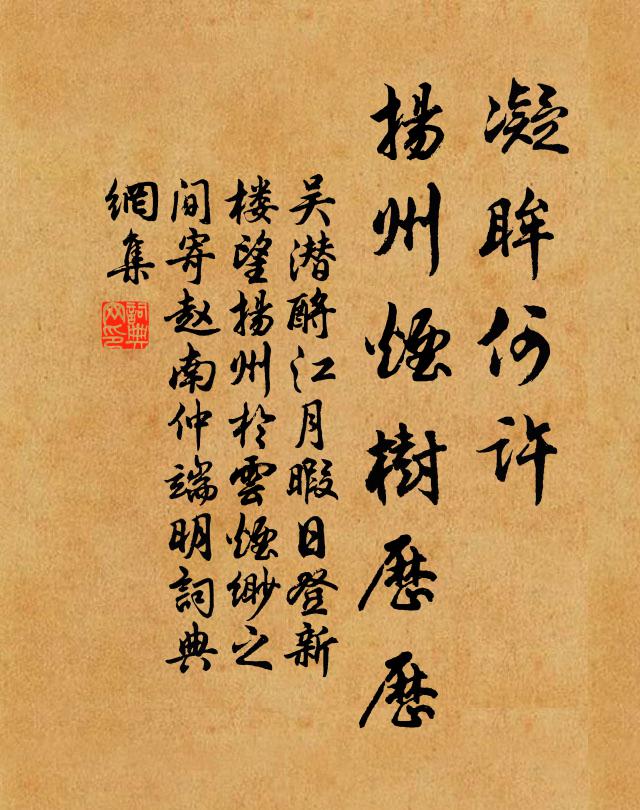 凝眸何许
揚州煙樹歷歷
吴潜酹江月暇日登新
楼望揚州於雲煙緲之
间寄赵南仲端明詞典
網集
詞典